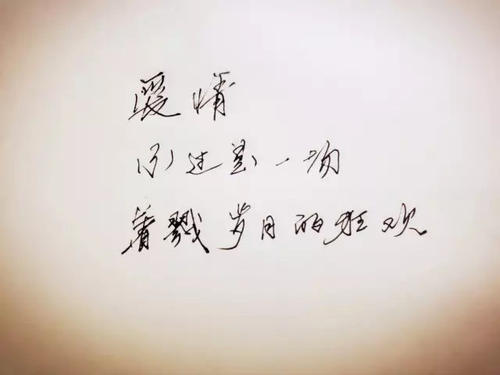 爱情
不过是一场
着戮岁月的狂欢